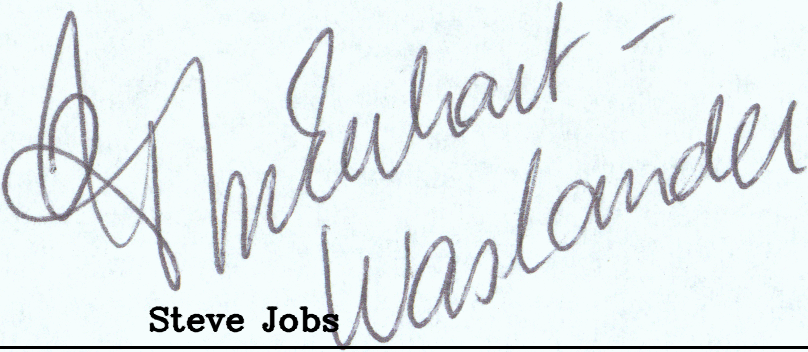 Enhart-
Waslander
Steve Jobs